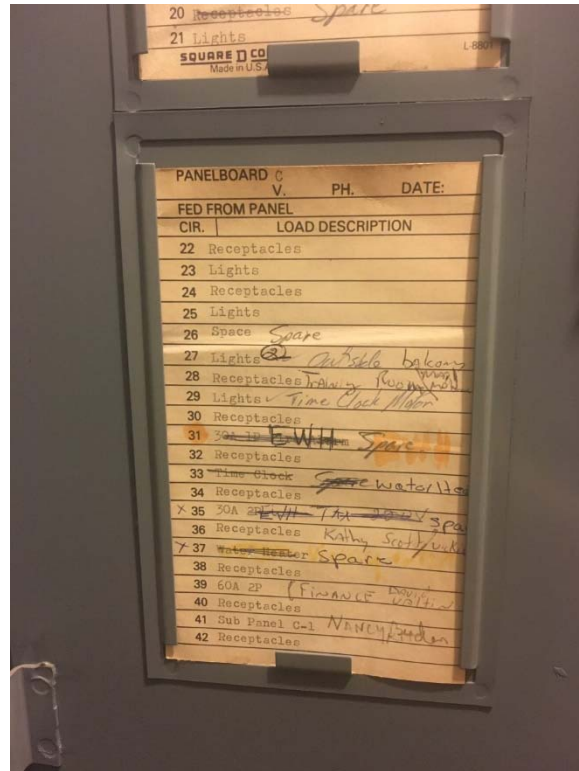 20 Receptacles Spare
21 Lights
SQUARE D CO
Made in U.S.A
L-8801
PANELBOARD C
V. PH. DATE:
FED FROM PANEL
CIR. LOAD DESCRIPTION
22 Receptacles
23 Lights
24 Receptacles
25 Lights
26 Space Spare
27 Lights outside balcony
28 Receptacles Training Room
29 Lights Time Clock Motor
30 Receptacles
31 30A 1P EWH Spare
32 Receptacles
33 Time Clock Spare water
34 Receptacles
x 35 30A 2P EWH
36 Receptacles Kathy Scott
x 37 Water Heater Spare
38 Receptacles
39 60A 2P FINANCE
40 Receptacles
41 Sub Panel C-1 NANCY
42 Receptacles